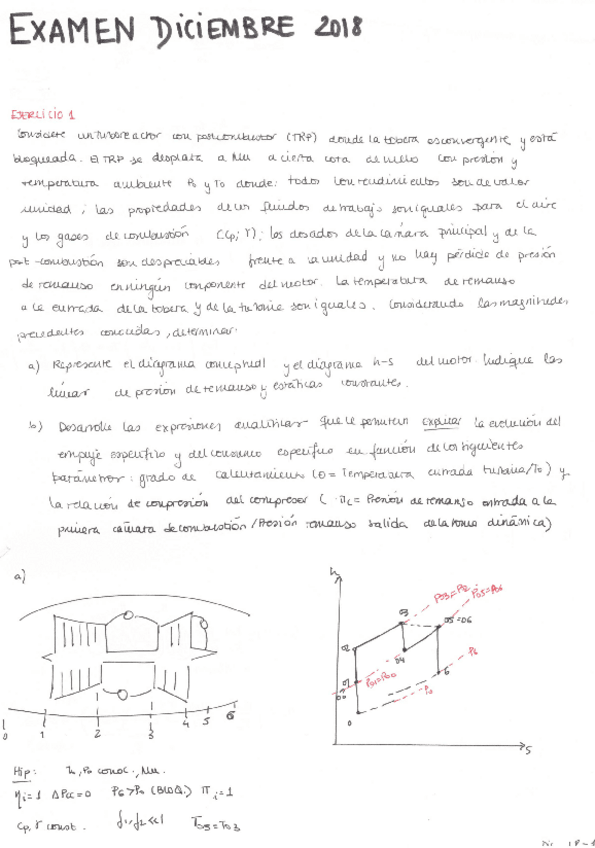 EXAMEN DICIEMBRE 2018
EJERCICIO 1
Considere un turborreactor con postcombustor (TRP) donde la tobera es convergente y está
bloqueada. El TRP se desplaza a Mo a cierta cota de vuelo con presión y
temperatura ambiente Po y To donde: todos los rendimientos son de valor
unidad; las propiedades de los fluidos de trabajo son iguales para el aire
y los gases de combustión (Cp; γ); los dosados de la cámara principal y de la
post-combustión son despreciables frente a la unidad y no hay pérdida de presión
de remanso en ningún componente del motor. La temperatura de remanso
a la entrada de la tobera y de la turbina son iguales. Considerando las magnitudes
precedentes conocidas, determinar:
a) Represente el diagrama conceptual y el diagrama h-s del motor. Indique las
líneas de presión de remanso y estáticas constantes.
b) Desarrolle las expresiones analíticas que le permitan explicar la evolución del
empuje específico y del consumo específico en función de los siguientes
parámetros: grado de calentamiento (θ = Temperatura entrada turbina/To) y
la relación de compresión del compresor (πc = Presión de remanso entrada a la
primera cámara de combustión / Presión remanso salida de la toma dinámica)
a)
h
03
P03=P02
P05=P06
05=06
02
04
P6
P01=P00
6
Po
0
s
0 1 2 3 4 5 6
Hip: To, Po conoc., Mo.
ηi=1 ΔPcc=0 P6>Po (BLOQ.) πi=1
Cp, γ const. f1, f2 <<1 T05=T03